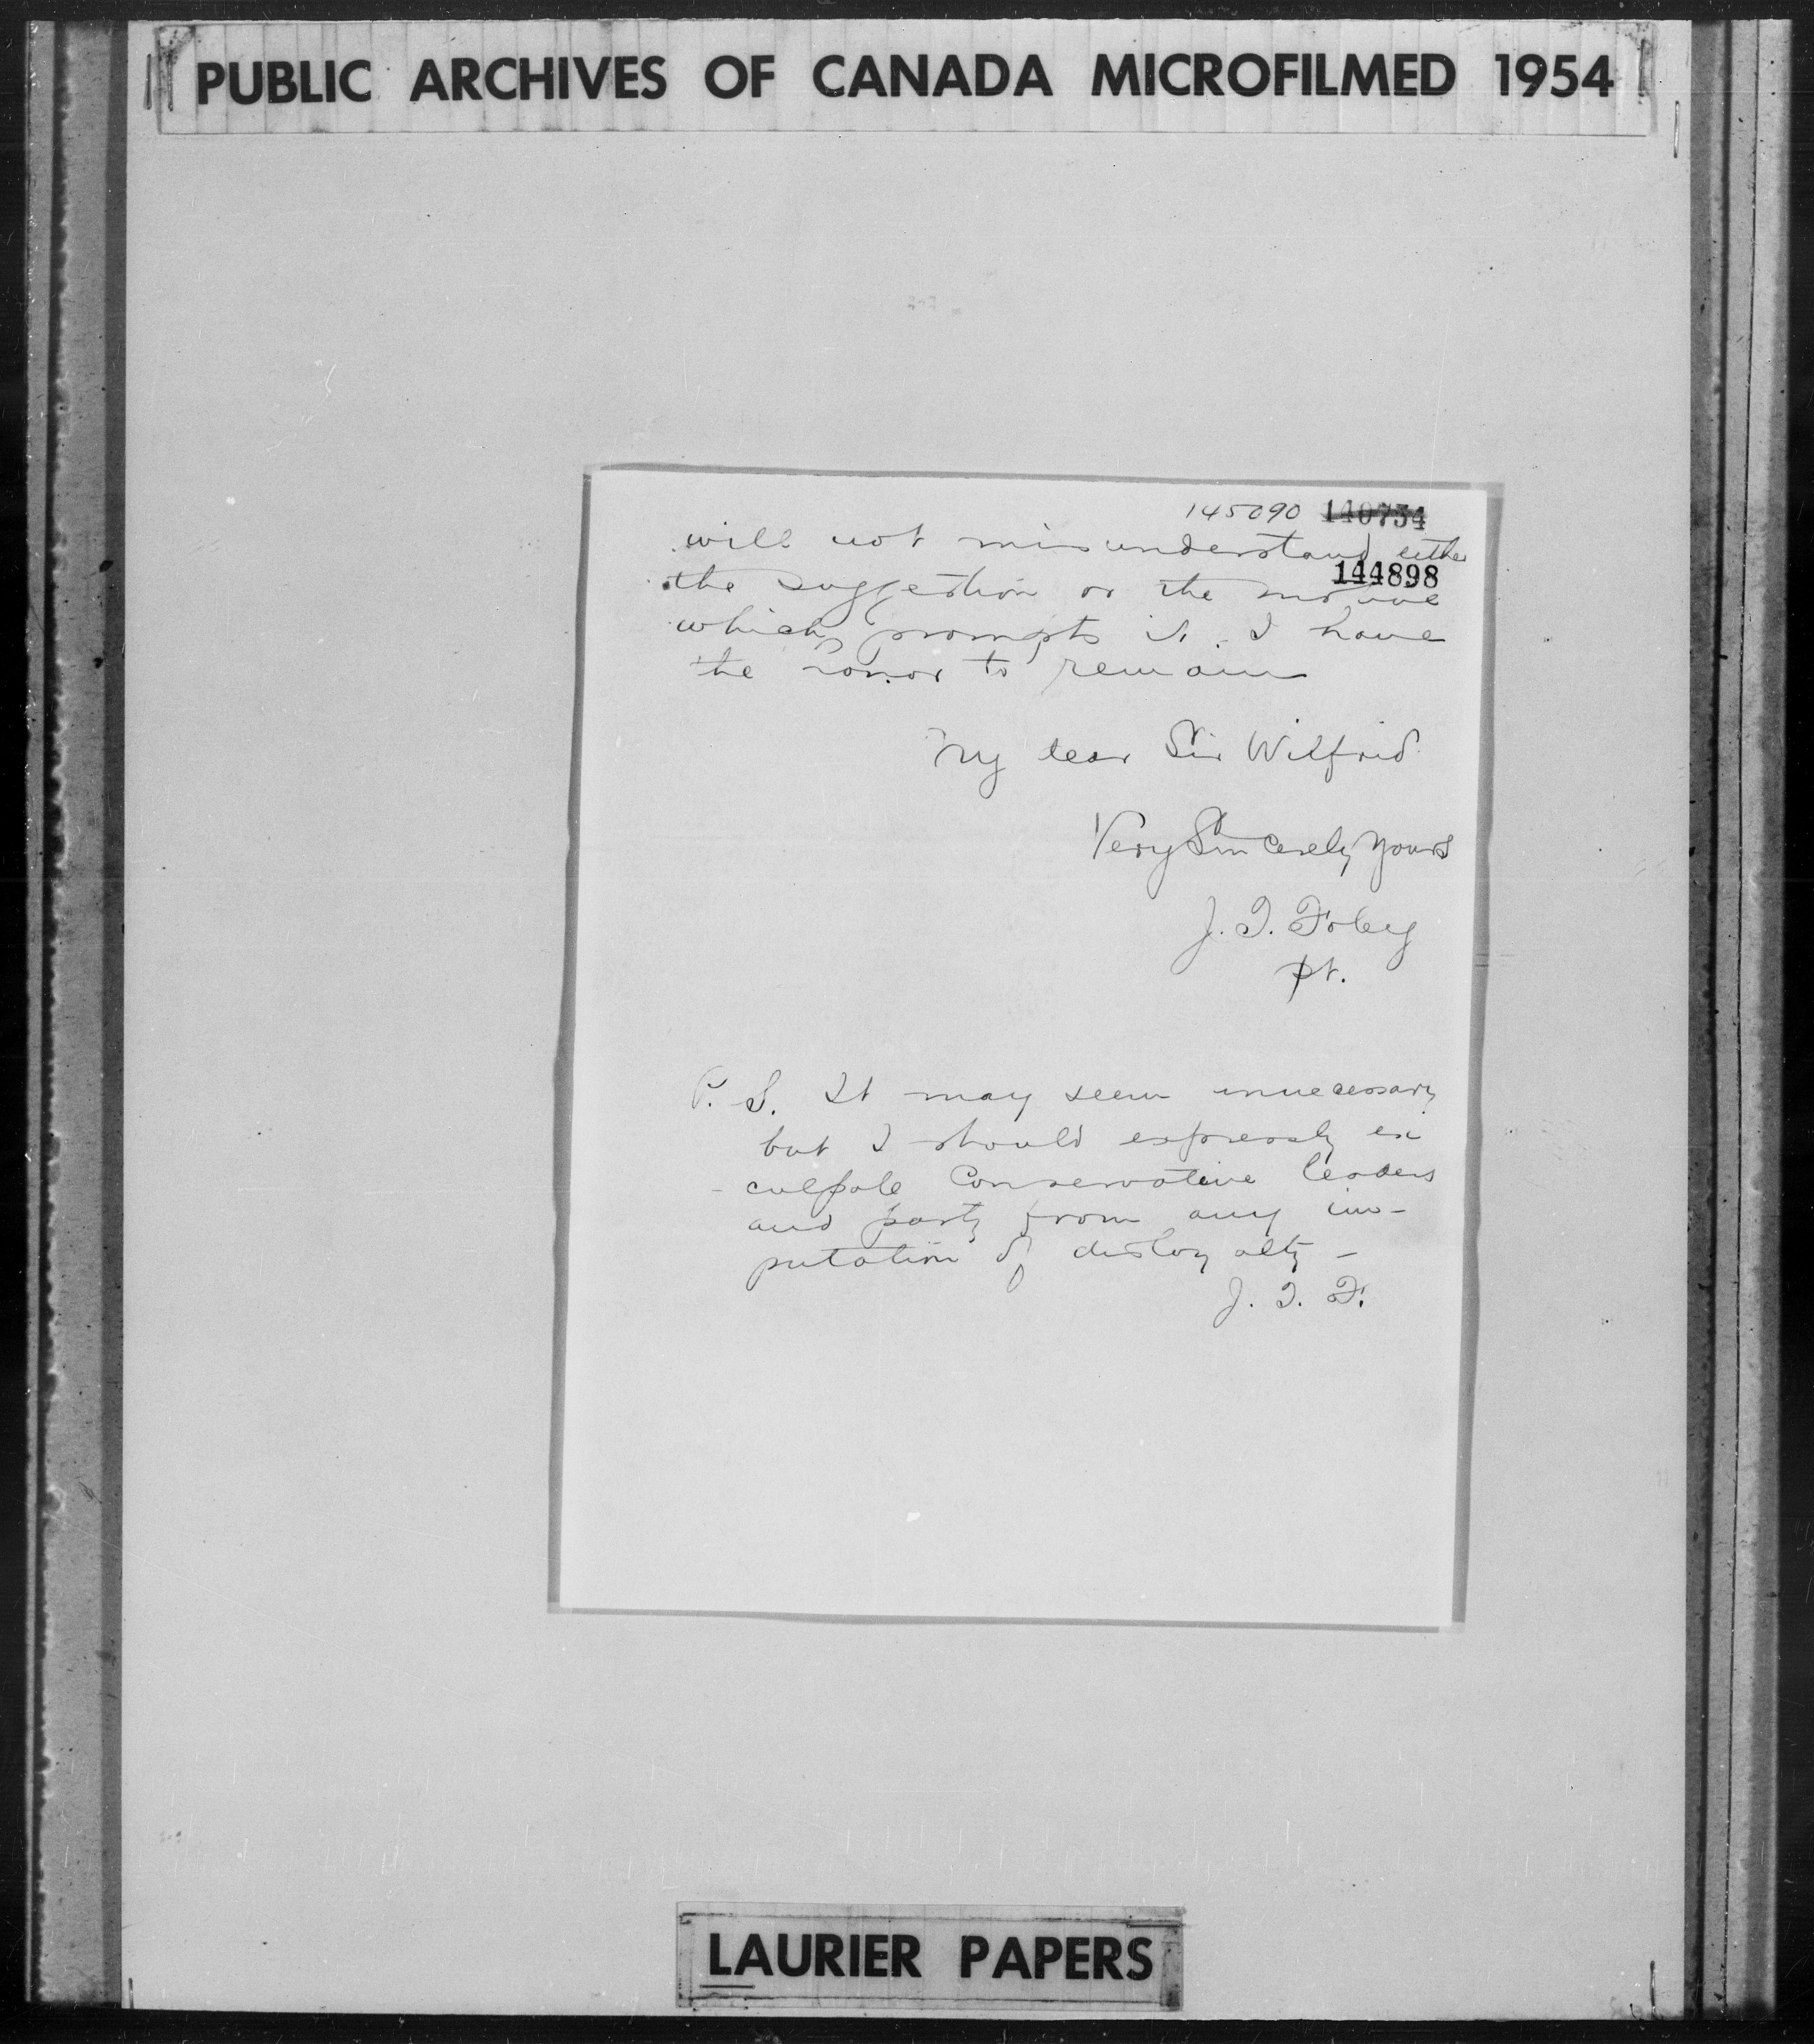 PUBLIC ARCHIVES OF CANADA MICROFILMED 1954
145090 140734
will not misunderstand either
144898
the suggestion or the motive
which prompts it. I have
the honor to remain
My dear Sir Wilfrid
Very Sincerely Yours
J. T. Foley
pt.
P. S. It may seem unnecessary
but I should expressly ex
- culpate Conservative leaders
and party from any im-
putation of disloyalty -
J. T. F.
LAURIER PAPERS